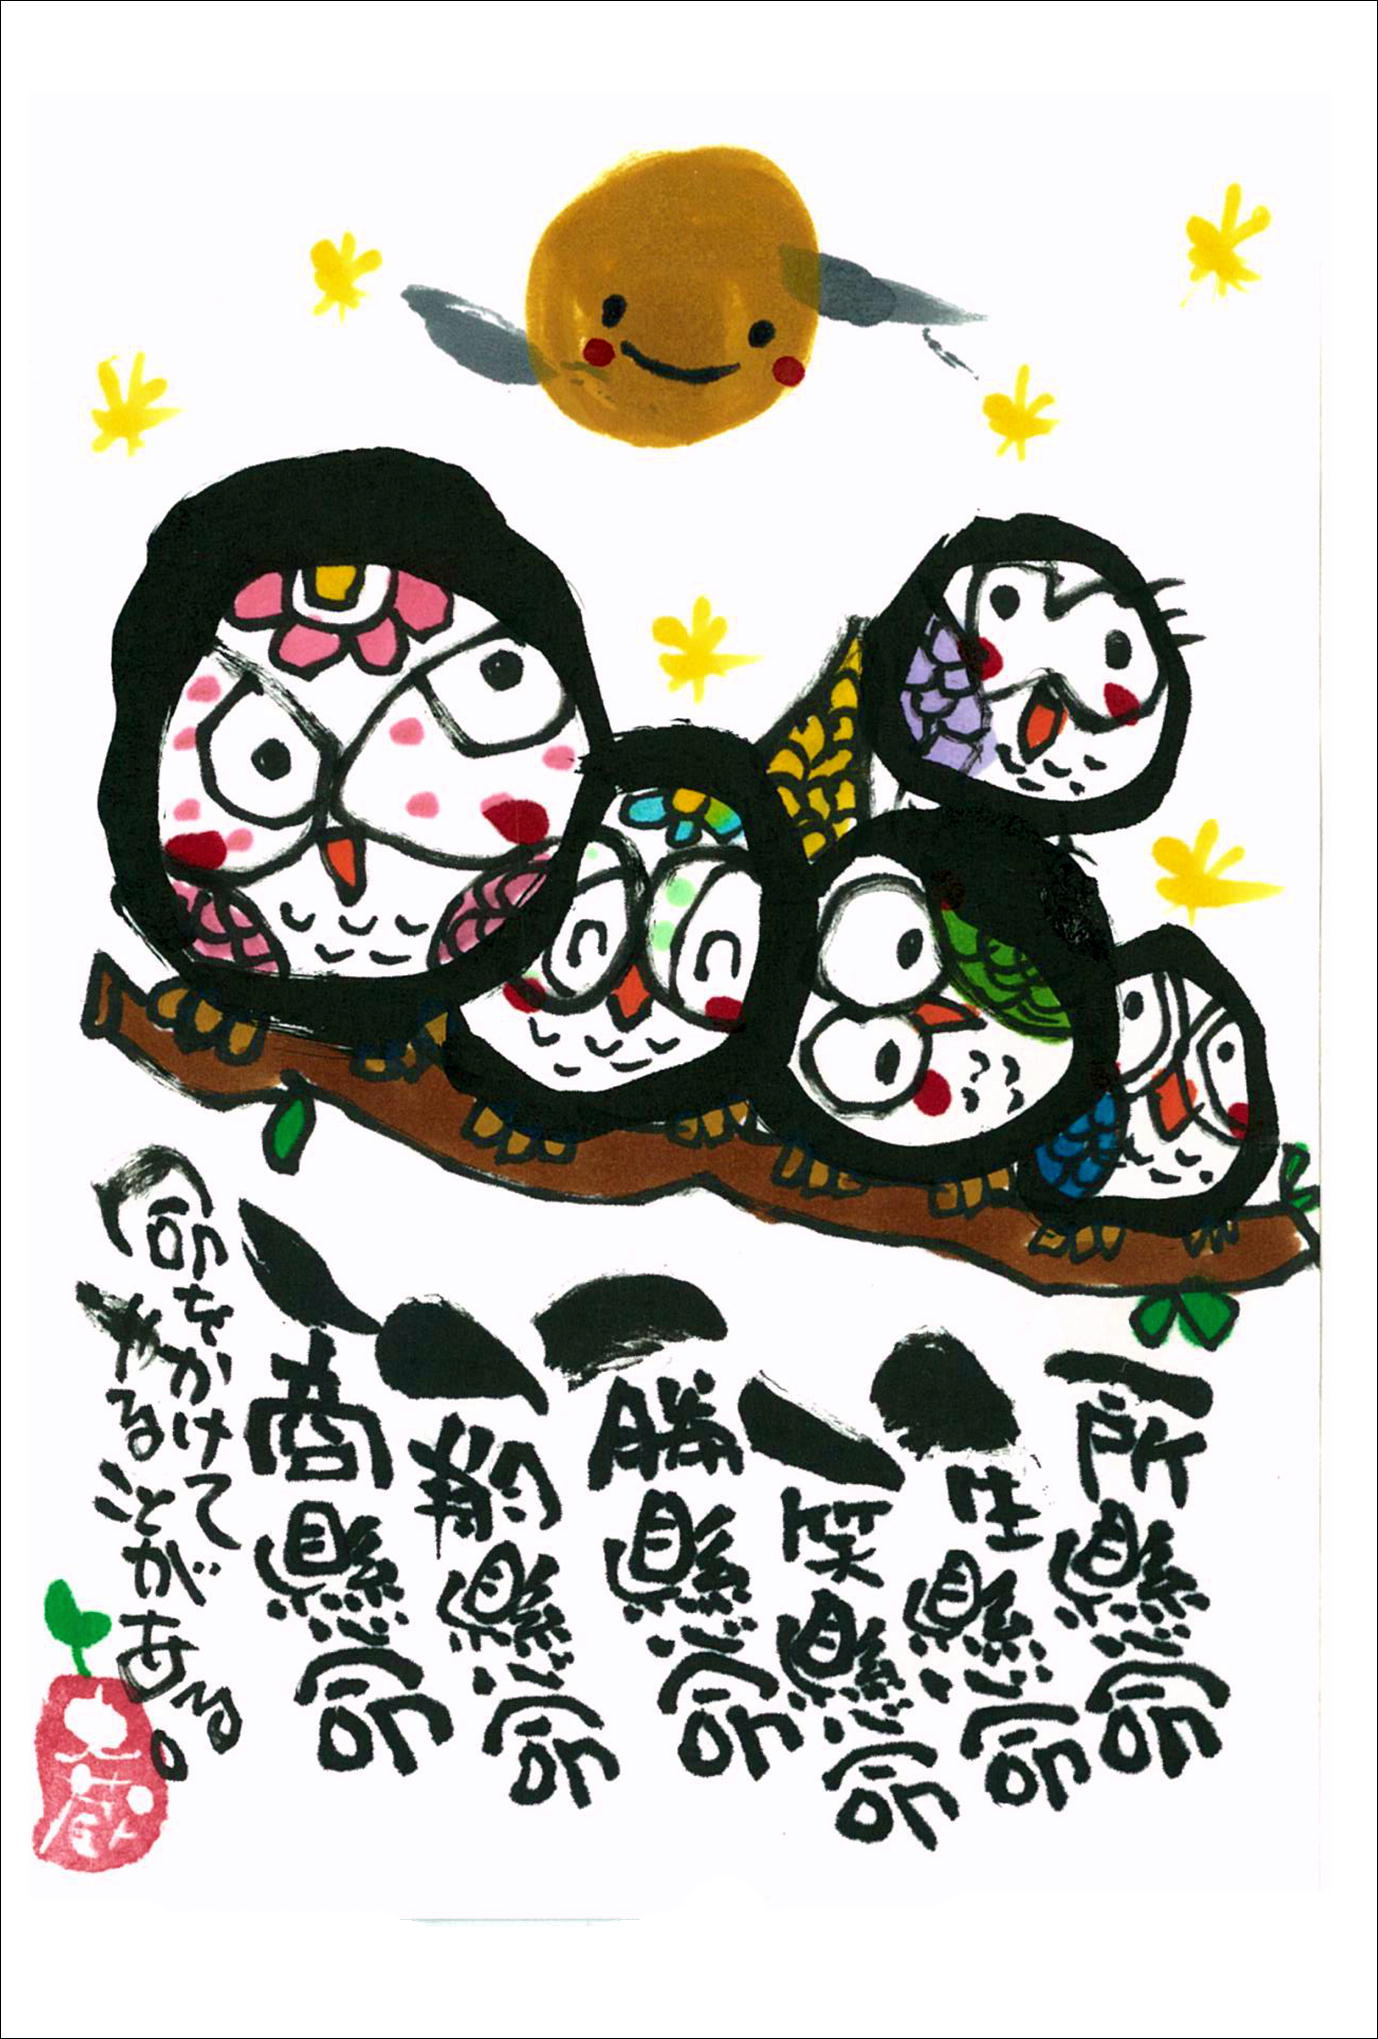 一所懸命
一生懸命
一笑懸命
一勝懸命
一翔懸命
一商懸命
命をかけて
やることがある。